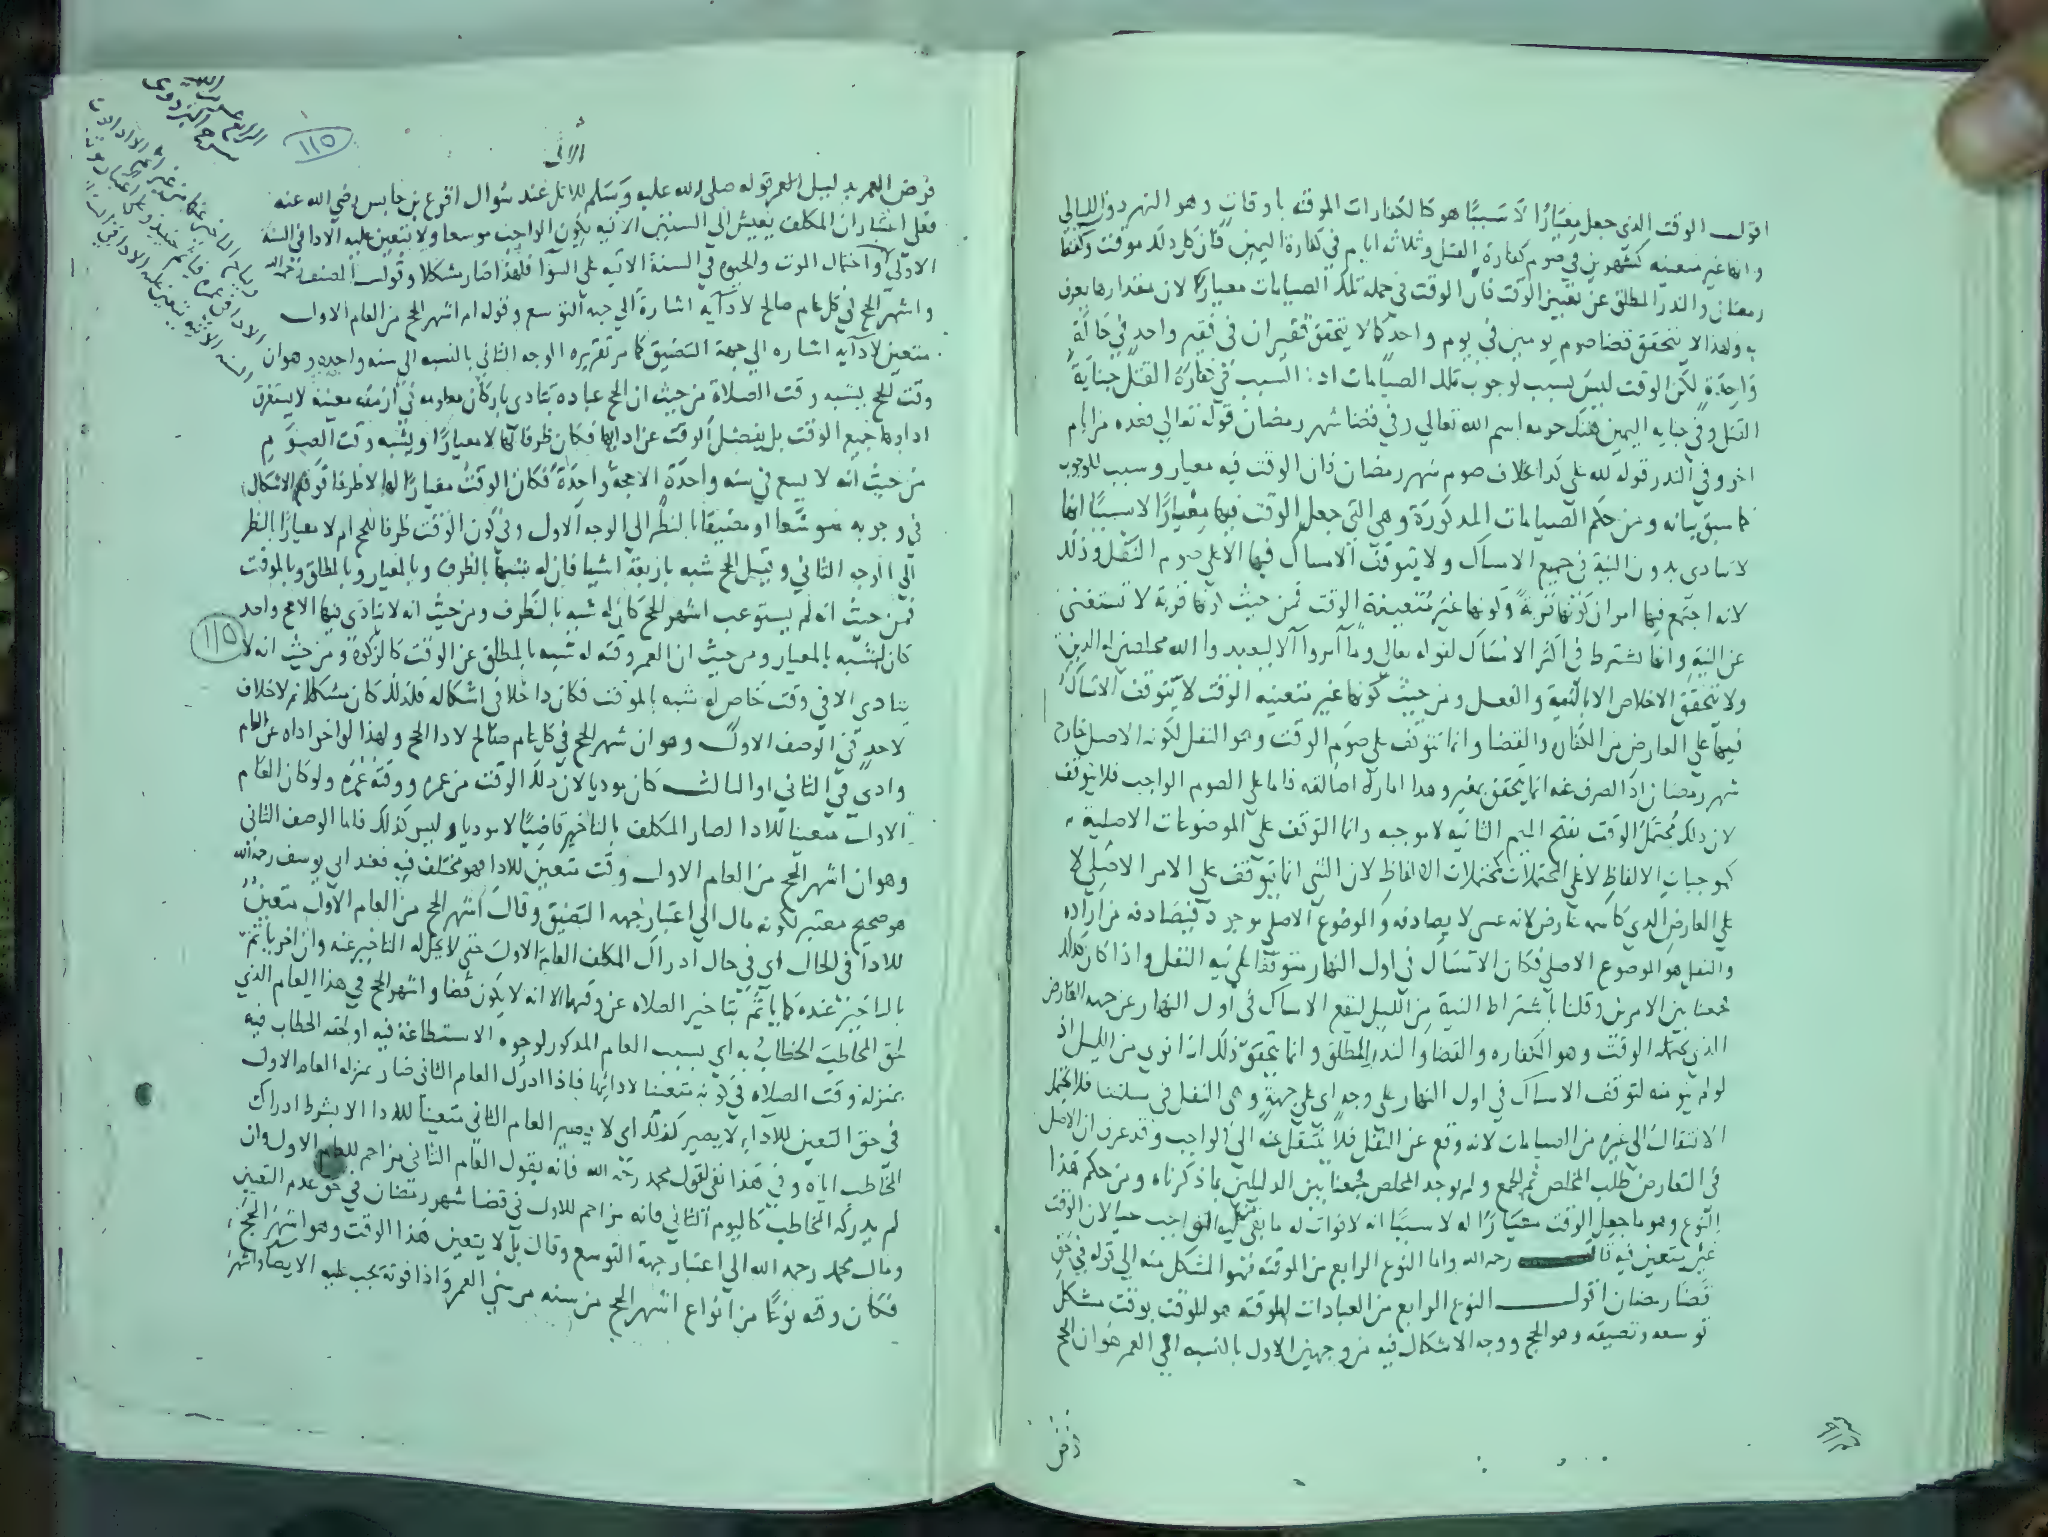 اقول الوقت الذي جعل معيارًا لا سببًا هو كالكفارات الموقته باوقات وهو النهر دون الليالي
وانها غير متعينه كشهرين في صوم كفارة القتل وثلاثه ايام في كفارة اليمين فان كل ذلك موقت
رمضان والنذر المطلق عن تعيين الوقت فان الوقت في جمله تلك الصيامات معيارًا لان مقدارها يعرف
به ولهذا لا يتحقق قضا صوم يومين في يوم واحد كما لا يتحقق في فقير واحد في حالة
واحدة لكن الوقت ليس بسبب لوجوب تلك الصيامات اذ السبب في كفارة القتل جناية
القتل وفي جنايه اليمين هتك حرمه اسم الله تعالى وفي قضا شهر رمضان قوله تعالى فعده من ايام
اخر وفي النذر قوله لله علي كذا بخلاف صوم شهر رمضان فان الوقت فيه معيار وسبب للوجوب
كما سبق بيانه ومن حكم الصيامات المذكورة وهي التي جعل الوقت فيها معيارًا لا سببًا انها
لا تتادى بدون النية في جميع الامساك ولا يتوقف الامساك فيها الا على صوم النفل وذلك
لانه اجتمع فيها امران كونها قربةً وكونها غير متعينة الوقت فمن حيث انها قربة لا تستغني
عن النية وانما تشترط في اكثر الامساك لقوله تعالى وما امروا الا ليعبدوا الله مخلصين له الدين
ولا يتحقق الاخلاص الا بالنية والفعل ومن حيث كونها غير متعينه الوقت لا يتوقف الامساك
فيها على العارض من الكفاره والقضا وانما تتوقف على صوم الوقت وهو النفل لكونه الاصل خارج
شهر رمضان اذ الصرف عنه انما يتحقق بمغير وهذا اماره اصالته فاما على الصوم الواجب فلا يتوقف
لان ذلك محتمل الوقت بفتح الميم الثانيه لا موجبه وانما التوقف على الموضوعات الاصلية
كموجبات الالفاظ لا على المحتملات كمحتملات الالفاظ لان الشي انما يتوقف على الامر الاصلي لا
على العارض الذي كاسمه عارض لانه عسى لا يصادفه والموضوع الاصلي موجود فيصادفه من اراده
والنفل هو الموضوع الاصلي فكان الامساك في اول النهار متوقفا على نيه النفل واذا كان كذلك
جمعنا بين الامرين وقلنا باشتراط النية من الليل ليقع الامساك في اول النهار عن جهه العارض
الذي يحتمله الوقت وهو الكفاره والقضا والنذر المطلق وانما يتحقق ذلك اذا نوى من الليل اذ
لو لم ينو منه لتوقف الامساك في اول النهار على وجه اي على جهةٍ وهي النفل في مسلتنا فلا يحتمل
الانتقال الى غيره من الصيامات لانه وقع عن النفل فلا ينتقل عنه الى الواجب وقد عرف ان الاصل
في التعارض طلب المخلص ثم الجمع ولم يوجد المخلص فجمعنا بين الدليلين بما ذكرناه ومن حكم هذا
النوع وهو ما جعل الوقت معيارًا له لا سببًا انه لا فوات له ما بقي حيا لان الوقت
غير متعين فيه قال رحمه الله واما النوع الرابع من الموقته فهو المشكل منه الى قوله في حق
قضا رمضان اقول النوع الرابع من العبادات الموقته هو الموقت بوقت مشكل
توسعه وتضييقه وهو الحج ووجه الاشكال فيه من وجهين الاول بالنسبه الى العمر هو ان الحج
فرض
الاتى
١١٥
الرابع
شرح البزدوى
فرض العمر بدليل قوله صلى الله عليه وسلم عند سوال اقرع بن حابس رضي الله عنه
فعلى اعتبار ان المكلف يعيش الى السنين الاتيه يكون الواجب موسعا ولا يتعين عليه الادا في السنة
الاولى واحتمال الموت والحيوه في السنة الاتيه على السوا فلهذا صار مشكلا وقول المصنف رحمه الله
واشهر الحج في كل عام صالح لادايه اشارة الى جهه التوسع وقوله ام اشهر الحج من العام الاول
متعين لادايه اشاره الى جهة التضييق كما مر تقريره الوجه الثاني بالنسبه الى سنه واحده وهو ان
وقت الحج يشبه وقت الصلاة من حيث ان الحج عباده تتادى باركان معلومه في ازمنه معينه لا يستغرق
اداوها جميع الوقت بل يفضل الوقت عن ادايها فكان ظرفا لها لا معيارًا ويشبه وقت الصوم
من حيث انه لا يسع في سنه واحدة الا حجة واحدةً فكان الوقت معيارًا لها لا ظرفا فوقع الاشكال
في وجوبه موسعا او مضيقا بالنظر الى الوجه الاول وفي كون الوقت ظرفا للحج ام لا معيارًا بالنظر
الى الوجه الثاني وقيل الحج شبه باربعة اشيا فان له شبها بالظرف وبالمعيار وبالمطلق وبالموقت
فمن حيث انه لم يستوعب اشهر الحج كان له شبه بالظرف ومن حيث انه لا يتادى فيها الا حج واحد
كان شبه بالمعيار ومن حيث ان العمر وقته له شبه بالمطلق عن الوقت كالزكوة ومن حيث انه لا
١١٥
يتادى الا في وقت خاص له شبه بالموقت فكان داخلا في اشكاله فلذلك كان مشكلا ثم لا خلاف
لاحد في الوصف الاول وهو ان شهر الحج في كل عام صالح لادا الحج ولهذا لو اخر اداه عن العام
وادى في الثاني او الثالث كان موديا لان ذلك الوقت من عمره ووقته عمره ولو كان العام
الاول متعينا للادا لصار المكلف بالتاخير قاضيًا لا موديا وليس كذلك فاما الوصف الثاني
وهو ان اشهر الحج من العام الاول وقت متعين للادا فهو مختلف فيه فعند ابي يوسف رحمه الله
هو صحيح معتبر لكونه مال الى اعتبار جهه التضييق وقال اشهر الحج من العام الاول متعين
للادا في الحال اي في حال ادراك المكلف العام الاول حتى لا يحل له التاخير عنه وان اخر ياثم
بالتاخير عنده كما ياثم بتاخير الصلاه عن وقتها الا انه لا يكون قضا واشهر الحج في هذا العام الذي
لحق المخاطب الخطاب به اي بسبب العام المذكور لوجود الاستطاعة فيه او لحقه الخطاب فيه
بمنزله وقت الصلاه في كونه متعينا لادائها فاذا ادرك العام الثاني صار بمنزله العام الاول
في حق التعين للاداء لا يصير كذلك اي لا يصير العام الثاني متعينًا للادا الا بشرط ادراك
المخاطب اياه وفي هذا نفي لقول محمد رحمه الله فانه يقول العام الثاني مزاحم للعام الاول وان
لم يدركه المخاطب كاليوم الثاني فانه مزاحم للاول في قضا شهر رمضان في حق عدم التعين
ومال محمد رحمه الله الى اعتبار جهة التوسع وقال بل لا يتعين هذا الوقت وهو اشهر الحج
فكان وقته نوعًا من انواع اشهر الحج من سنه من سني العمر واذا فوته يجب عليه الايصا